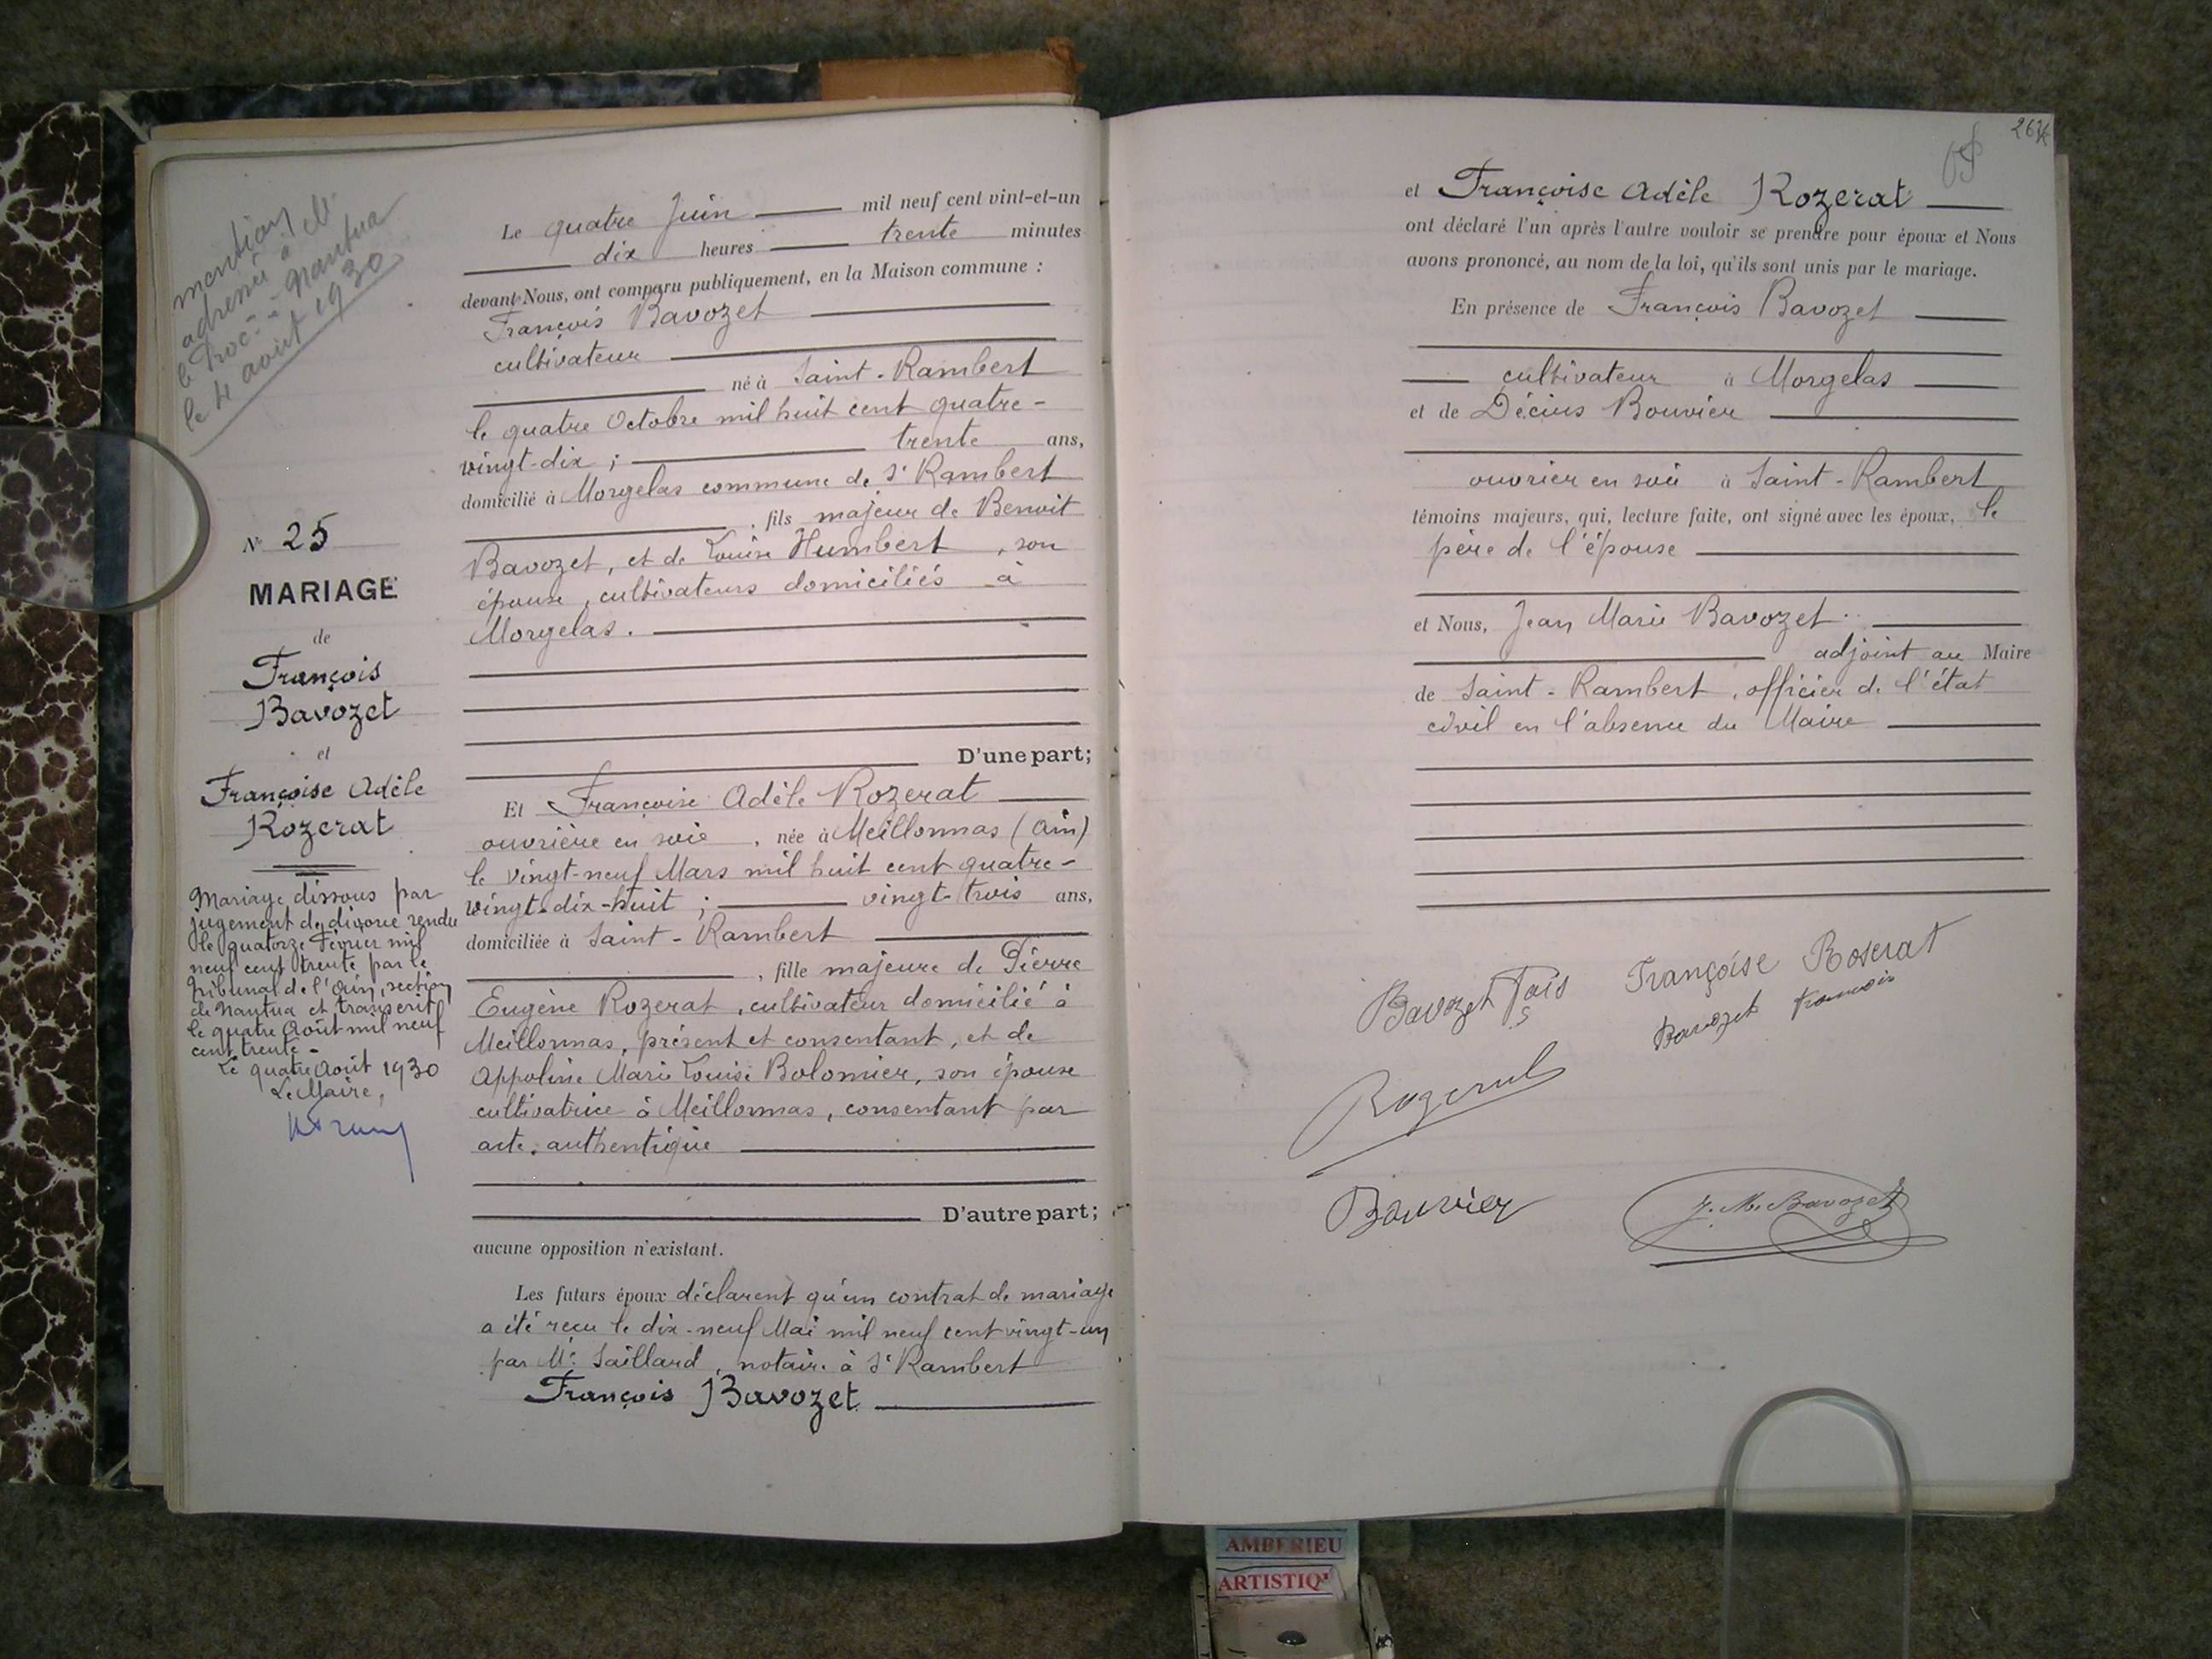 mention
adressée à M
le Proc. - Nantua
le 4 août 1930
N° 25
MARIAGE
de
François
Bavozet
et
Françoise Adèle
Rozerat
Mariage dissous par
jugement de divorce rendu
le quatorze Février mil
neuf cent trente par le
Tribunal de l'Ain, section
de Nantua et transcrit
le quatre Août mil neuf
cent trente -
Le quatre Août 1930
Le Maire,
Le quatre Juin mil neuf cent vint-et-un
dix heures trente minutes
devant Nous, ont comparu publiquement, en la Maison commune :
François Bavozet
cultivateur
né à Saint-Rambert
le quatre Octobre mil huit cent quatre-
vingt-dix ; trente ans,
domicilié à Morgelas commune de St Rambert
, fils majeur de Benoit
Bavozet, et de Louise Humbert, son
épouse, cultivateurs domiciliés à
Morgelas.
D'une part;
Et Françoise Adèle Rozerat
ouvrière en soie, née à Meillonnas (Ain)
le vingt-neuf Mars mil huit cent quatre-
vingt-dix-huit ; vingt-trois ans,
domiciliée à Saint-Rambert
, fille majeure de Pierre
Eugène Rozerat, cultivateur domicilié à
Meillonnas, présent et consentant, et de
Appoline Marie Louise Bolomier, son épouse
cultivatrice à Meillonnas, consentant par
acte authentique
D'autre part;
aucune opposition n'existant.
Les futurs époux déclarent qu'un contrat de mariage
a été reçu le dix-neuf Mai mil neuf cent vingt-un
par Me Saillard, notaire à St Rambert
François Bavozet
et Françoise Adèle Rozerat
ont déclaré l'un après l'autre vouloir se prendre pour époux et Nous
avons prononcé, au nom de la loi, qu'ils sont unis par le mariage.
En présence de François Bavozet
cultivateur à Morgelas
et de Décius Bouvier
ouvrier en soie à Saint-Rambert
témoins majeurs, qui, lecture faite, ont signé avec les époux, le
père de l'épouse
et Nous, Jean Marie Bavozet
adjoint au Maire
de Saint-Rambert, officier de l'état
civil en l'absence du Maire
Bavozet Fois Françoise Roserat
Bavozet francois
Rozerat
Bouvier J. M. Bavozet
AMBERIEU
ARTISTIQ